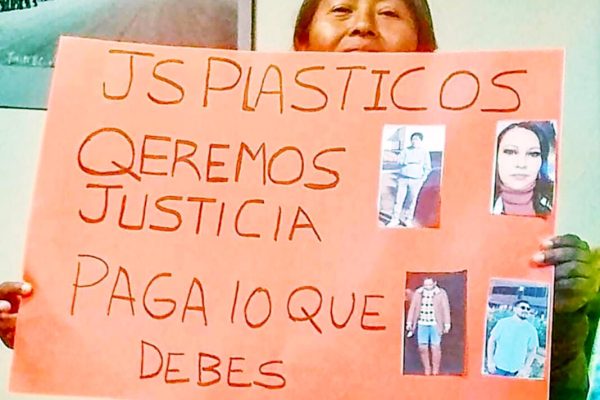 JS PLASTICOS
QEREMOS
JUSTICIA
PAGA lO QUE
DEBES